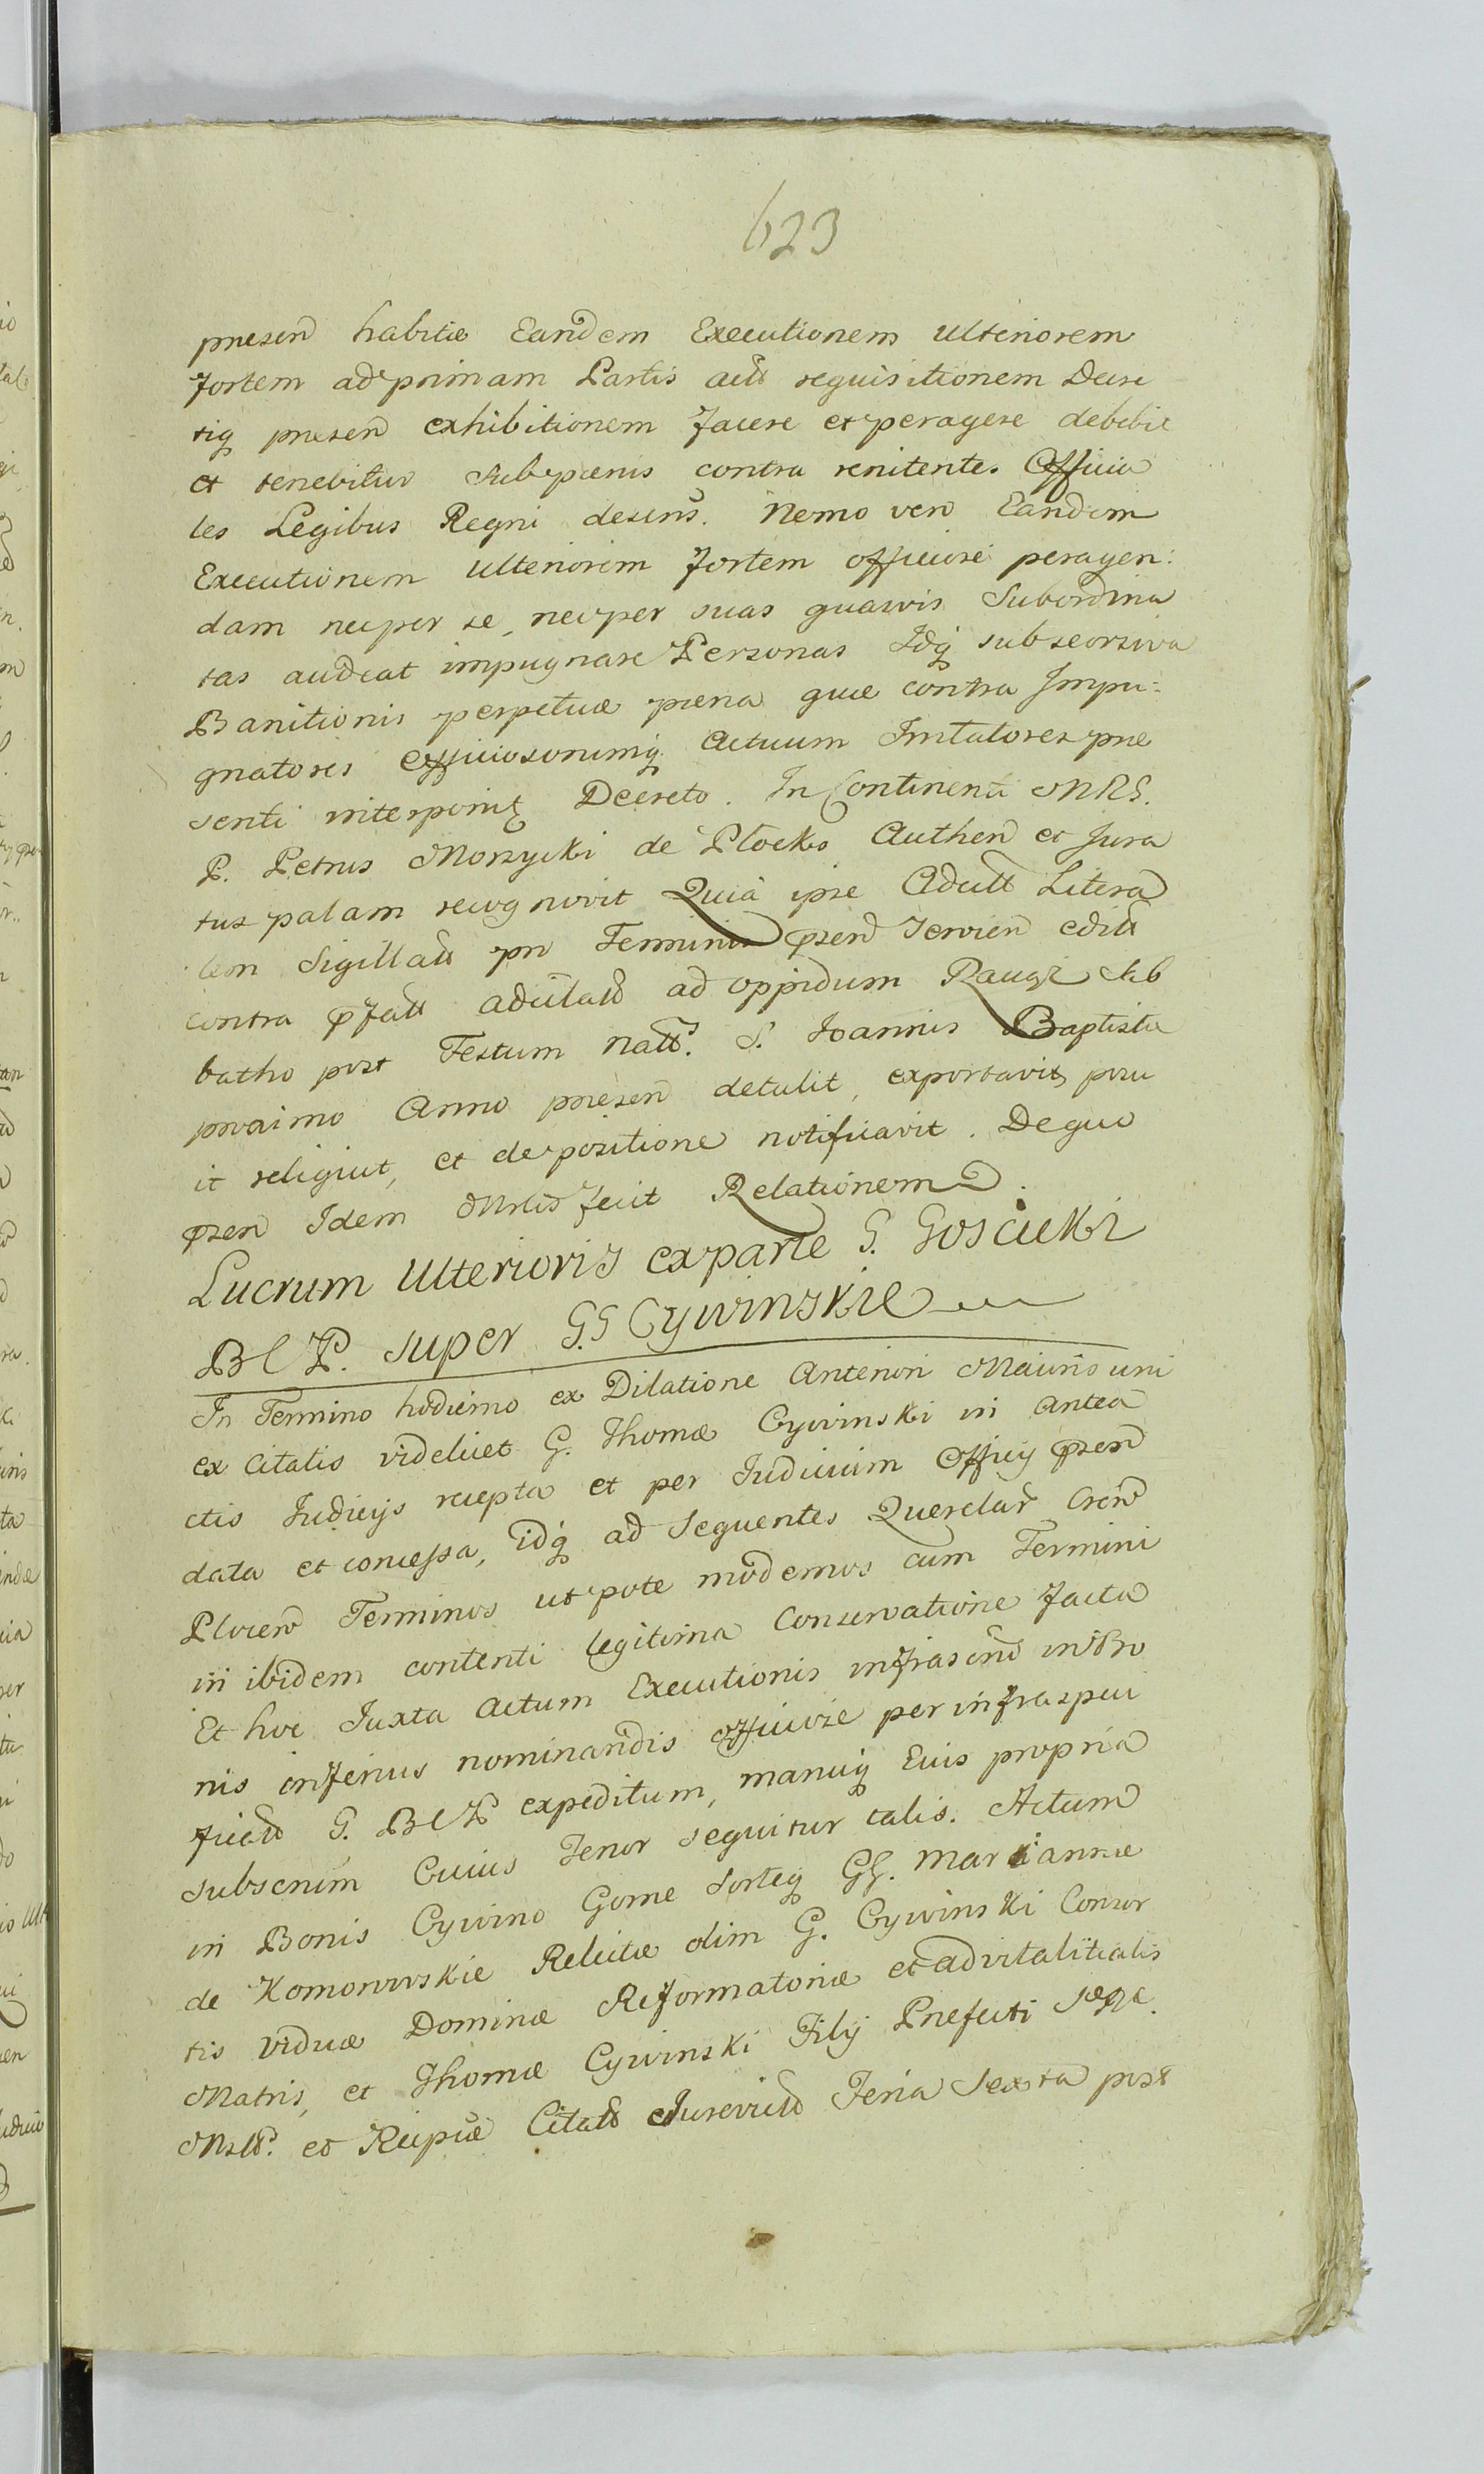 623
presen habitæ Eandem Executionem Ulteriorem
fortem ad primam Partis act requisitionem Decre
tiq presen exhibitionem facere et peragere debebit
et tenebitur sub pœnis contra renitentes Officia
les Legibus Regni descris. Nemo vero Eandem
Executionem Ulteriorem fortem officiose peragen:
dam nec per se, nec per suas quawis Subordina
tas audeat impugnare Personas Idq sub seorsiva
Banitionis perpetuæ pœna quæ contra Impu:
gnatores Officiosorumq Actuum Imitatores præ
senti interponit Decreto. In Continenti MRS.
P. Petrus Morzycki de Plocko Authen et Jura
tus palam recognovit Quia ipse Adcitt Litera
lem Sigillatt pro Termino pzen servien editt
contra pfatt adcitatt ad oppidum Raugi Sab
batho post Festum Natt. S. Ioannis Baptistæ
proximo Anno presen detulit, exportavit, posu
it reliquit, et depositione notificavit. De quo
pzen Idem Mrlis fecit Relationem.
Lucrum Ulterioris ex parte G. Goscicki
BCP. super G.G Cywinskie
In Termino hodierno ex Dilatione Anteriori Maioris uni
ex Citatis videlicet G. Thomæ Cywinski in antea
ctis Iudicijs recepta et per Iudicium Officij pzen
data et concessa, idq ad sequentes Querelar Cren
Plocen Terminos utpote modernos cum Termini
in ibidem contenti legitima Conservatione facta
Et hoc Iuxta Actum Executionis infrascris in Bo
nis inferius nominandis officiose per infraspeci
ficatt G. BCP expeditum, manuq Eius propria
subscrium Cuius Tenor sequitur talis. Actum
in Bonis Cywino Gorne Sorteq GG. Mariannæ
de Komorowskie Relictæ olim G. Cywinski Consor
tis viduæ Dominæ Reformatoriæ et advitalitialis
Matris, et Thomæ Cywinski Filij Præfecti
et Reipuæ Citatt Feria Sexta post